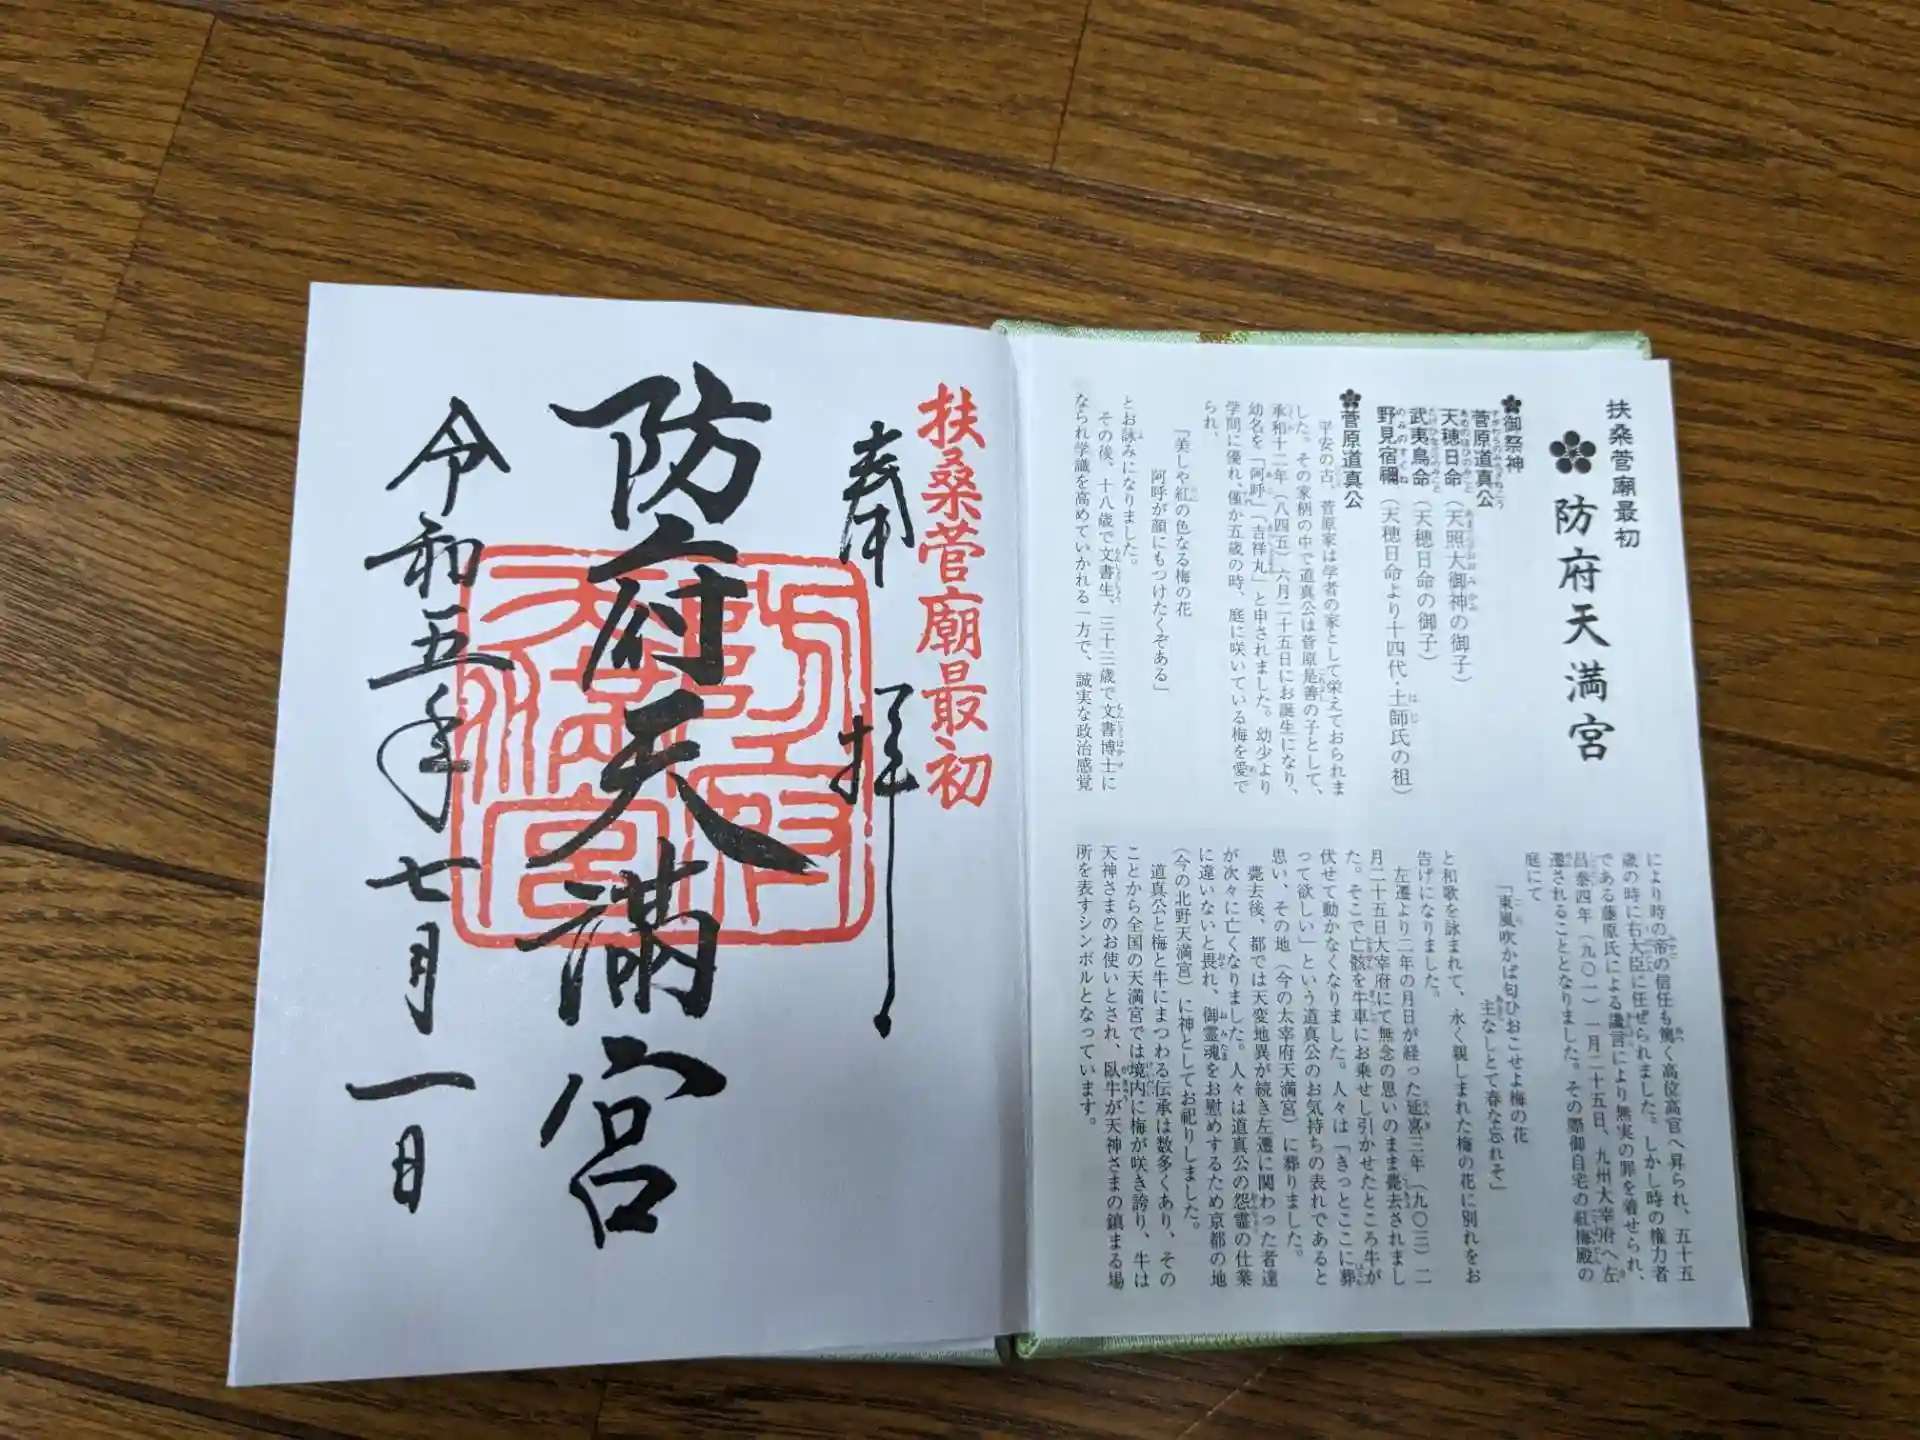 扶桑菅廟最初
防府天満宮
御祭神
菅原道真公
天穂日命(天照大御神の御子)
武夷鳥命(天穂日命の御子)
野見宿禰(天穂日命より十四代・土師氏の祖)
菅原道真公
平安の古、菅原家は学者の家として栄えておられま
した。その家柄の中で道真公は菅原是善の子として、
承和十二年(八四五)六月二十五日にお誕生になり、
幼名を「阿呼」「吉祥丸」と申されました。幼少より
学問に優れ、僅か五歳の時、庭に咲いている梅を愛で
られ、
「美しや紅の色なる梅の花
阿呼が顔にもつけたくぞある」
とお詠みになりました。
その後、十八歳で文書生、三十三歳で文書博士に
なられ学識を高めていかれる一方で、誠実な政治感覚
により時の帝の信任も篤く高位高官へ昇られ、五十五
歳の時に右大臣に任ぜられました。しかし時の権力者
である藤原氏による讒言により無実の罪を着せられ、
昌泰四年(九〇一)一月二十五日、九州大宰府へ左
遷されることとなりました。その際御自宅の紅梅殿の
庭にて
「東風吹かば匂ひおこせよ梅の花
主なしとて春な忘れそ」
と和歌を詠まれて、永く親しまれた梅の花に別れをお
告げになりました。
左遷より二年の月日が経った延喜三年(九〇三)二
月二十五日大宰府にて無念の思いのまま薨去されまし
た。そこで亡骸を牛車にお乗せし引かせたところ牛が
伏せて動かなくなりました。人々は「きっとここに葬
って欲しい」という道真公のお気持ちの表れであると
思い、その地(今の太宰府天満宮)に葬りました。
薨去後、都では天変地異が続き左遷に関わった者達
が次々に亡くなりました。人々は道真公の怨霊の仕業
に違いないと畏れ、御霊魂をお慰めするため京都の地
(今の北野天満宮)に神としてお祀りしました。
道真公と梅と牛にまつわる伝承は数多くあり、その
ことから全国の天満宮では境内に梅が咲き誇り、牛は
天神さまのお使いとされ、臥牛が天神さまの鎮まる場
所を表すシンボルとなっています。
扶桑菅廟最初
奉拝
防府天満宮
防府天満宮
令和五年七月一日